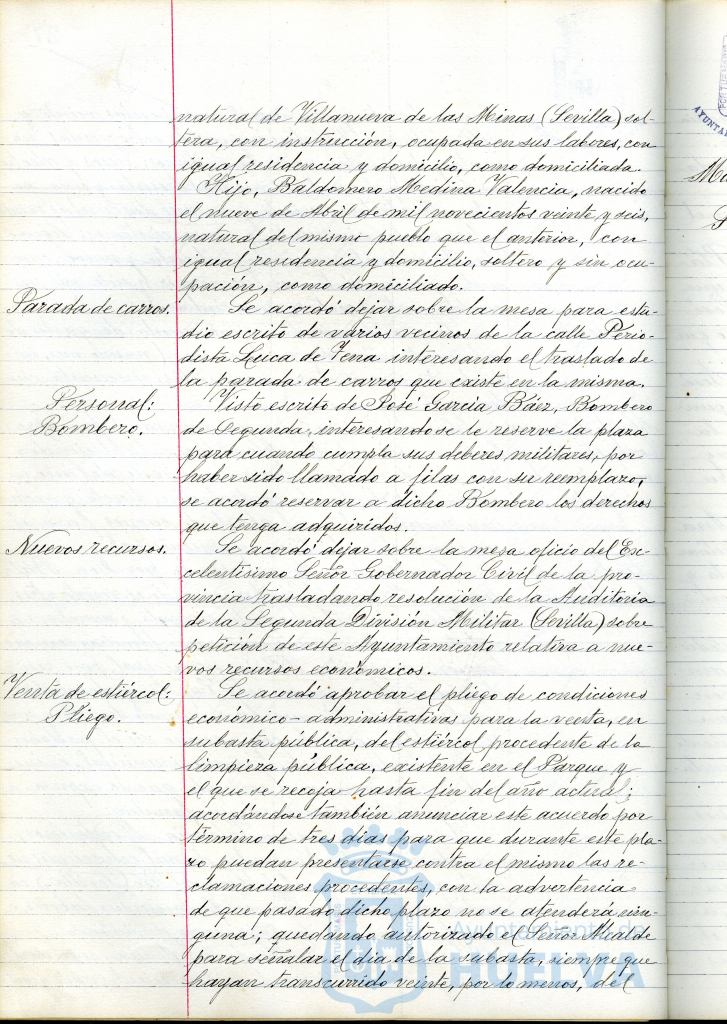 natural de Villanueva de las Minas (Sevilla) sol-
tera, con instrucción, ocupada en sus labores, con
igual residencia y domicilio, como domiciliada.
Hijo, Baldomero Medina Valencia, nacido
el nueve de Abril de mil novecientos veinte y seis,
natural del mismo pueblo que el anterior, con
igual residencia y domicilio, soltero y sin ocu-
pación, como domiciliado.
Parada de carros.
Se acordó dejar sobre la mesa para estu-
dio escrito de varios vecinos de la calle Perio-
dista Luca de Tena interesando el traslado de
la parada de carros que existe en la misma.
Personal:
Bombero.
Visto escrito de José García Báez, Bombero
de segunda, interesando se le reserve la plaza
para cuando cumpla sus deberes militares, por
haber sido llamado a filas con su reemplazo,
se acordó reservar a dicho Bombero los derechos
que tenga adquiridos.
Nuevos recursos.
Se acordó dejar sobre la mesa oficio del Ex-
celentísimo Señor Gobernador Civil de la pro-
vincia trasladando resolución de la Auditoria
de la Segunda División Militar (Sevilla) sobre
petición de este Ayuntamiento relativa a nue-
vos recursos económicos.
Venta de estiércol:
Pliego.
Se acordó aprobar el pliego de condiciones
económico-administrativas para la venta, en
subasta pública, del estiércol procedente de la
limpieza pública, existente en el Parque y
el que se recoja hasta fin del año actual;
acordándose también anunciar este acuerdo por
término de tres días para que durante este pla-
zo puedan presentarse contra el mismo las re-
clamaciones procedentes, con la advertencia
de que pasado dicho plazo no se atenderá nin-
guna; quedando autorizado el Señor Alcalde
para señalar el día de la subasta, siempre que
hayan transcurrido veinte, por lo menos, del
Ayuntamiento de
HUELVA